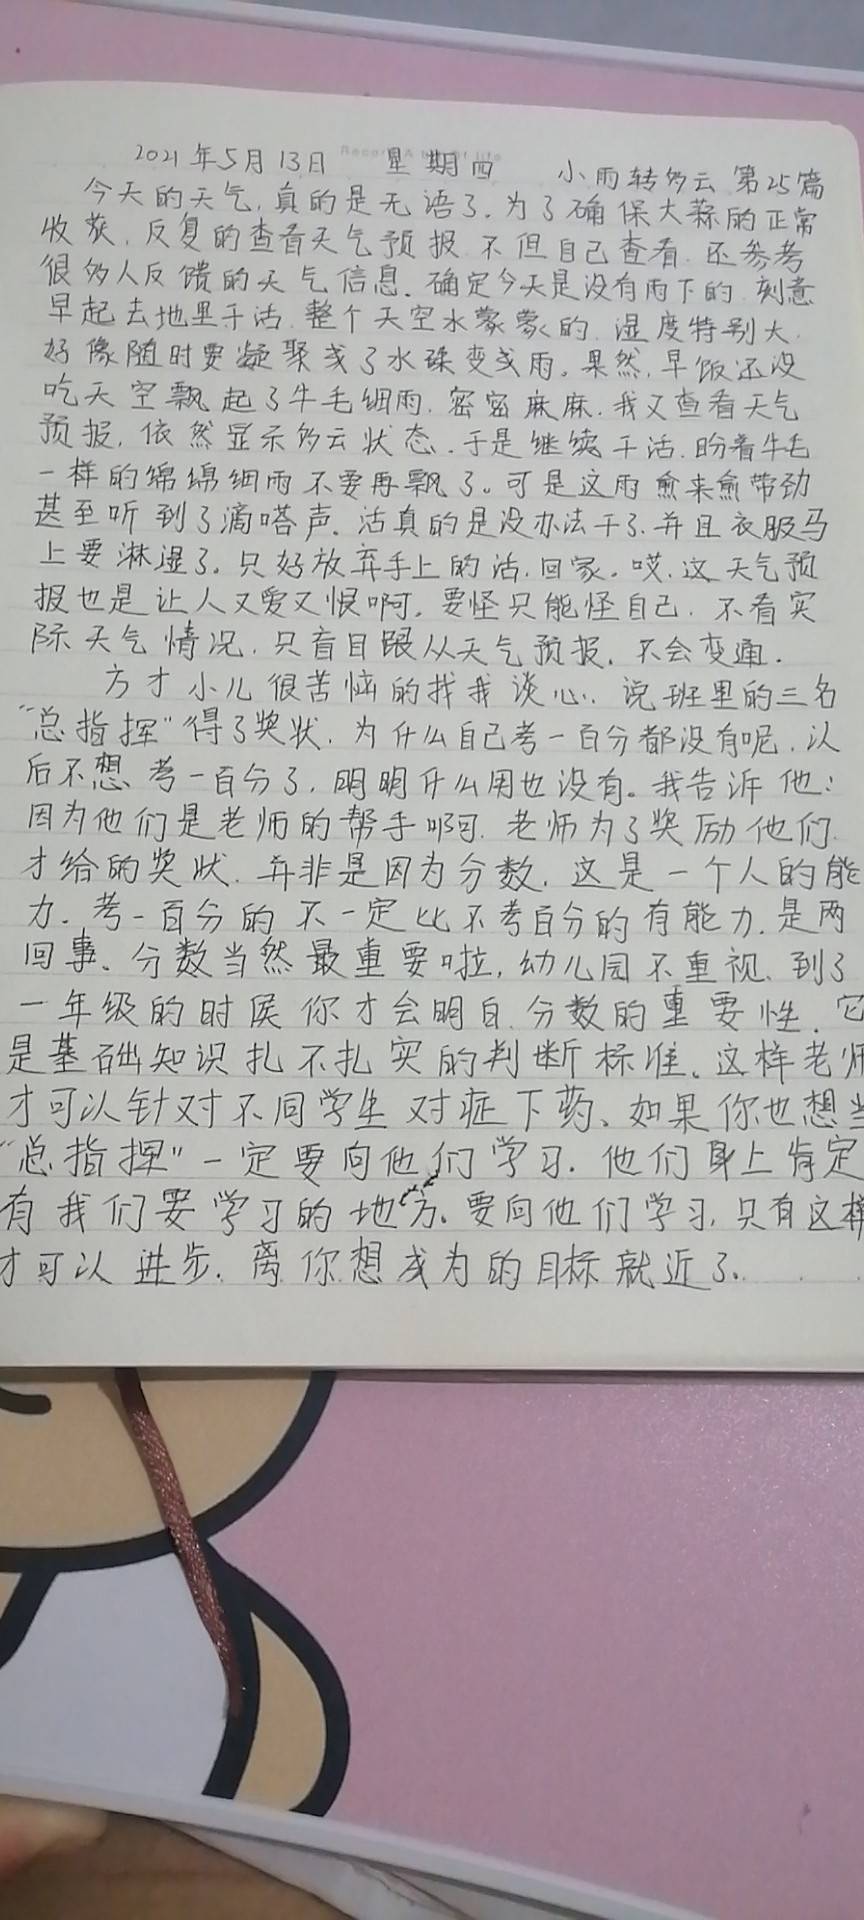 2021年5月13日 星期四 小雨转多云 第25篇
今天的天气,真的是无语了.为了确保大蒜的正常
收获,反复的查看天气预报.不但自己查看.还参考
很多人反馈的天气信息.确定今天是没有雨下的.刻意
早起去地里干活.整个天空水蒙蒙的.湿度特别大.
好像随时要凝聚成了水珠变成雨。果然,早饭还没
吃天空飘起了牛毛细雨.密密麻麻.我又查看天气
预报,依然显示多云状态.于是继续干活.盼着牛毛
一样的绵绵细雨不要再飘了。可是这雨愈来愈带劲
甚至听到了滴嗒声.活真的是没办法干了.并且衣服马
上要淋湿了。只好放弃手上的活.回家。哎.这天气预
报也是让人又爱又恨啊。要怪只能怪自己.不看实
际天气情况.只盲目跟从天气预报.不会变通.
方才小儿很苦恼的找我谈心.说班里的三名
"总指挥"得了奖状.为什么自己考一百分都没有呢.以
后不想考一百分了.明明什么用也没有。我告诉他:
因为他们是老师的帮手啊.老师为了奖励他们
才给的奖状.并非是因为分数.这是一个人的能
力.考一百分的不一定比不考百分的有能力.是两
回事.分数当然最重要啦,幼儿园不重视.到了
一年级的时候你才会明白.分数的重要性.它
是基础知识扎不扎实的判断标准.这样老师
才可以针对不同学生对症下药.如果你也想当
"总指挥"一定要向他们学习.他们身上肯定
有我们要学习的地方.要向他们学习.只有这样
才可以进步.离你想成为的目标就近了.